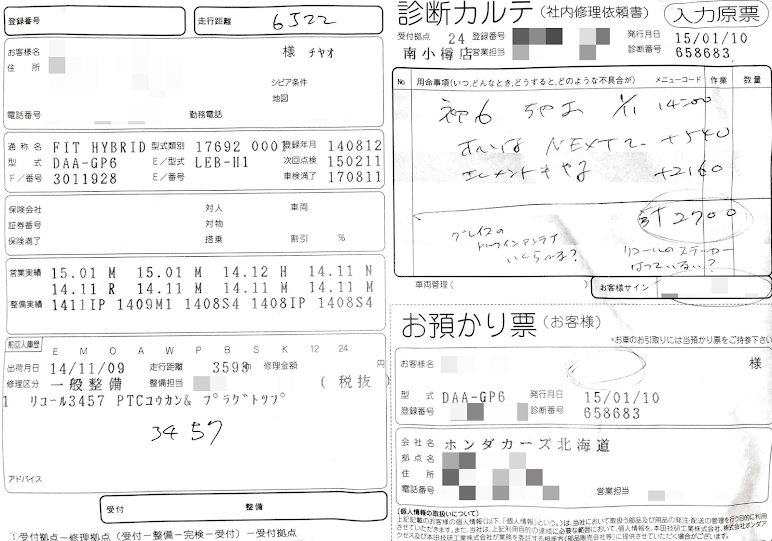 登録番号
走行距離 6522
お客様名 様 チヤオ
住 所
シビア条件
地図
電話番号 勤務電話
通 称 名 FIT HYBRID 型式類別 17692 0001 登録年月 140812
型 式 DAA-GP6 E/型式 LEB-H1 次回点検 150211
F/番号 3011928 E/番号 車検満了 170811
保険会社 対人 車両
証券番号 対物
保険満了 搭乗 割引 %
営業実績 15.01 M 15.01 M 14.12 H 14.11 N
14.11 R 14.11 M 14.11 M 14.11 M
整備実績 1411IP 1409M1 1408S4 1408IP 1408S4
前回入庫歴
E M O A W P B S K 12 24 円
出荷月日 14/11/09 走行距離 3593 m 修理金額
修理区分 一般整備 整備担当 (税抜)
1 リコール3457 PTCユウカン& プラグトツプ
3457
アドバイス
受付 整備
①受付拠点−修理拠点(受付−整備−完検−受付)−受付拠点
診断カルテ(社内修理依頼書) 入力原票
受付拠点 24 登録番号 発行月日 15/01/10
南小樽店 営業担当 診断番号 658683
No. 用命事項(いつ、どんなとき、どうすると、どのような不具合が) メニューコード 作業 数量
初6 ちゃお 1/11 14:00
オイルは NEXTで +540
エレメントもやる +2160
計2700
グレイスの
いくらかな?
リコールのステッカー
はっている?
車両管理( )
お客様サイン
お預かり票(お客様)
*お車のお引取りには当預かり票をご持参下さい
お客様名 様
型 式 DAA-GP6 発行月日 15/01/10
登録番号 診断番号 658683
会 社 名 ホンダカーズ北海道
拠 点 名
住 所
電話番号 営業担当
[個人情報の取扱いについて]
上記記載のお客様の個人情報(以下、「個人情報」という。)は、当社において取扱う部品及び用品の発注・配送の管理を行う目的に利用
させていただきます。また、当社は、上記利用目的の達成に必要な範囲において、本田技研工業株式会社、株式会社ホンダア
クセス及び本田技研工業株式会社が業務を委託する用品取扱